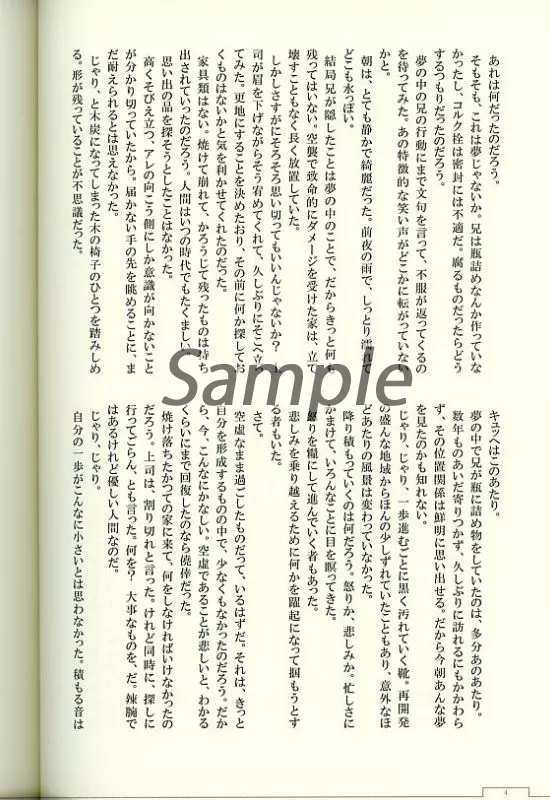 あれは何だったのだろう。
そもそも、これは夢じゃないか。兄は瓶詰めなんか作っていな
かったし、コルク栓は密封には不適だ。腐るものだったらどう
するつもりだったのだろう。
夢の中の兄の行動にまで文句を言って、不服が返ってくるの
を待ってみた。あの特徴的な笑い声がどこかに転がっていない
かと。
朝は、とても静かで綺麗だった。前夜の雨で、しっとり濡れて
どこも水っぽい。
結局兄が隠したことは夢の中のことで、だからきっと何も
残ってはいない。空襲で致命的にダメージを受けた家は、立て
壊すこともなく長く放置していた。
しかしさすがにそろそろ思い切ってもいいんじゃないか？ 上
司が眉を下げながらそう宥めてくれて、久しぶりにそこへ立っ
てみた。更地にすることを決めたおり、その前に何か探してお
くものはないかと気を利かせてくれたのだった。
家具類はない。焼けて崩れて、かろうじて残ったものは持ち
出されていったのだろう。人間はいつの時代でもたくましい。
思い出の品を探そうとしたことはなかった。
高くそびえ立つ、アレの向こう側にしか意識が向かないこと
が分かり切っていたから。届かない手の先を眺めることに、ま
だ耐えられるとは思えなかった。
じゃり、と木炭になってしまった木の椅子のひとつを踏みしめ
る。形が残っていることが不思議だった。
キュッヘはこのあたり。
夢の中で兄が瓶に詰め物をしていたのは、多分あのあたり。
数年ものあいだ寄りつかず、久しぶりに訪れるにもかかわら
ず、その位置関係は鮮明に思い出せる。だから今朝あんな夢
を見たのかも知れない。
じゃり、じゃり、一歩進むごとに黒く汚れていく靴。再開発
の盛んな地域からほんの少しずれていたこともあり、意外なほ
どあたりの風景は変わっていなかった。
降り積もっていくのは何だろう。怒りか、悲しみか。忙しさに
かまけて、いろんなことに目を瞑ってきた。
怒りを糧にして進んでいく者もあった。
悲しみを乗り越えるために何かを躍起になって掴もうとす
る者もいた。
さて。
空虚なまま過ごしたものだって、いるはずだ。それは、きっと
自分を形成するものの中で、少なくもなかったのだろう。だか
ら、今、こんなにかなしい。空虚であることが悲しいと、わかる
くらいにまで回復したのなら僥倖だった。
焼け落ちたかつての家に来て、何をしなければいけなかったの
だろう。上司は、割り切れと言った。けれど同時に、探しに
行ってごらん、とも言った。何を？ 大事なものを、だ。辣腕で
はあるけれど優しい人間なのだ。
じゃり、じゃり。
自分の一歩がこんなに小さいとは思わなかった。積もる音は
Sample
4